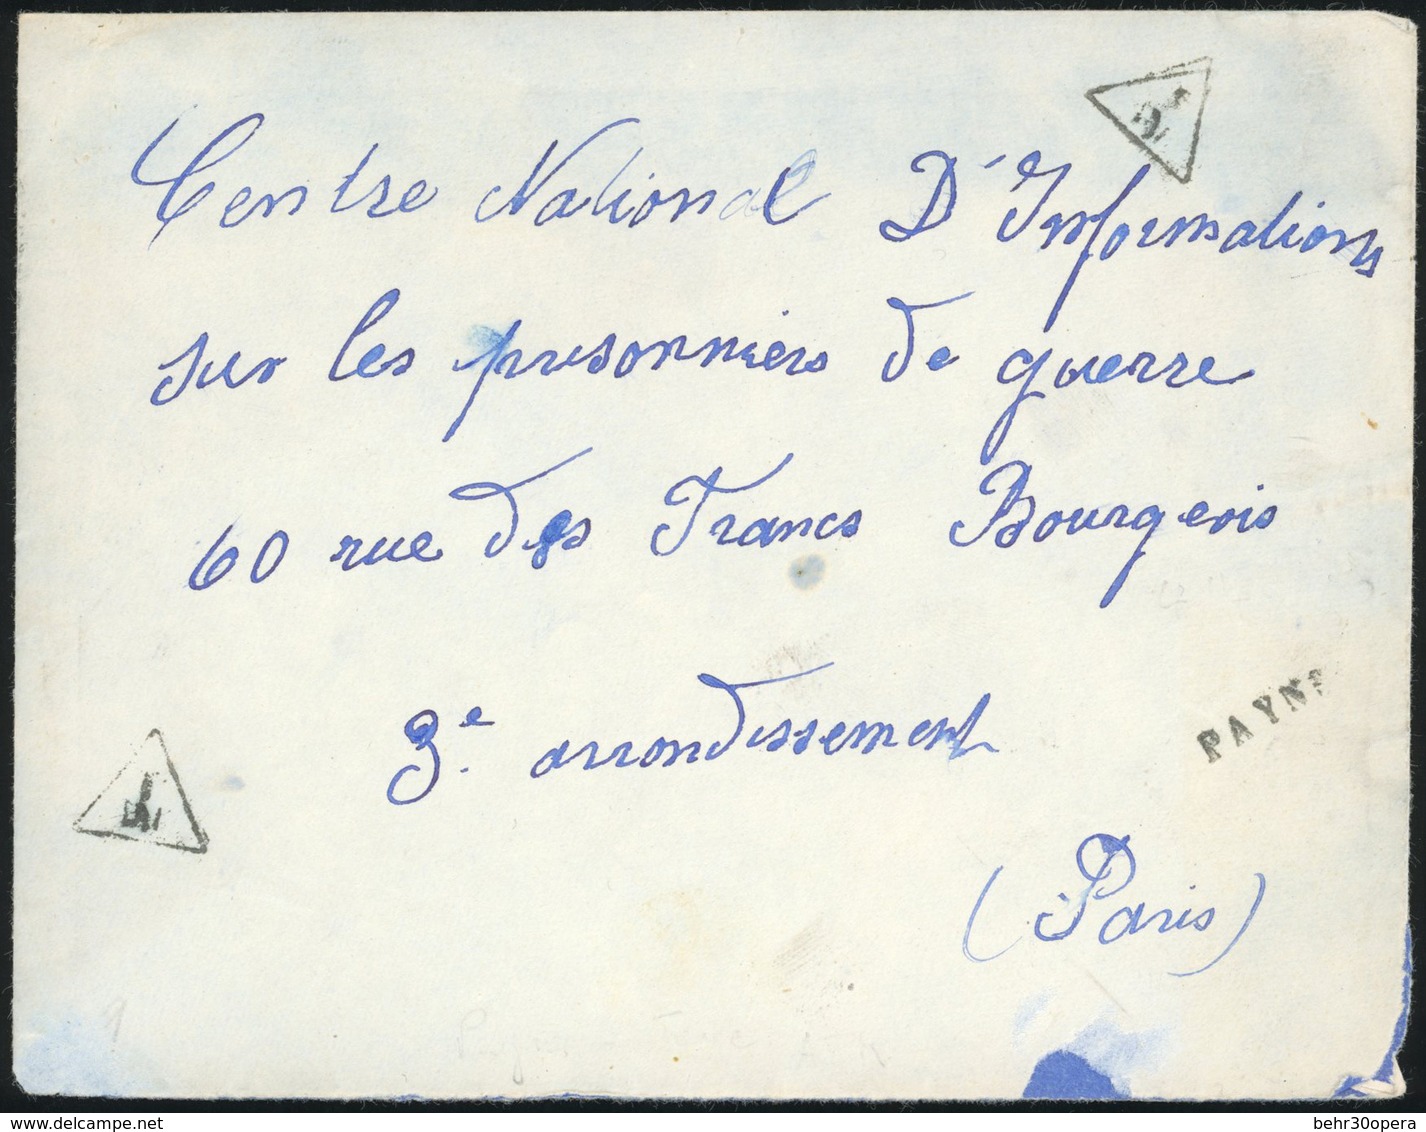 Centre National D'Informations
sur les prisonniers de guerre
60 rue des Francs Bourgeois
PAYNS
3e arrondissement
(Paris)
delcampe.net
behr30opera